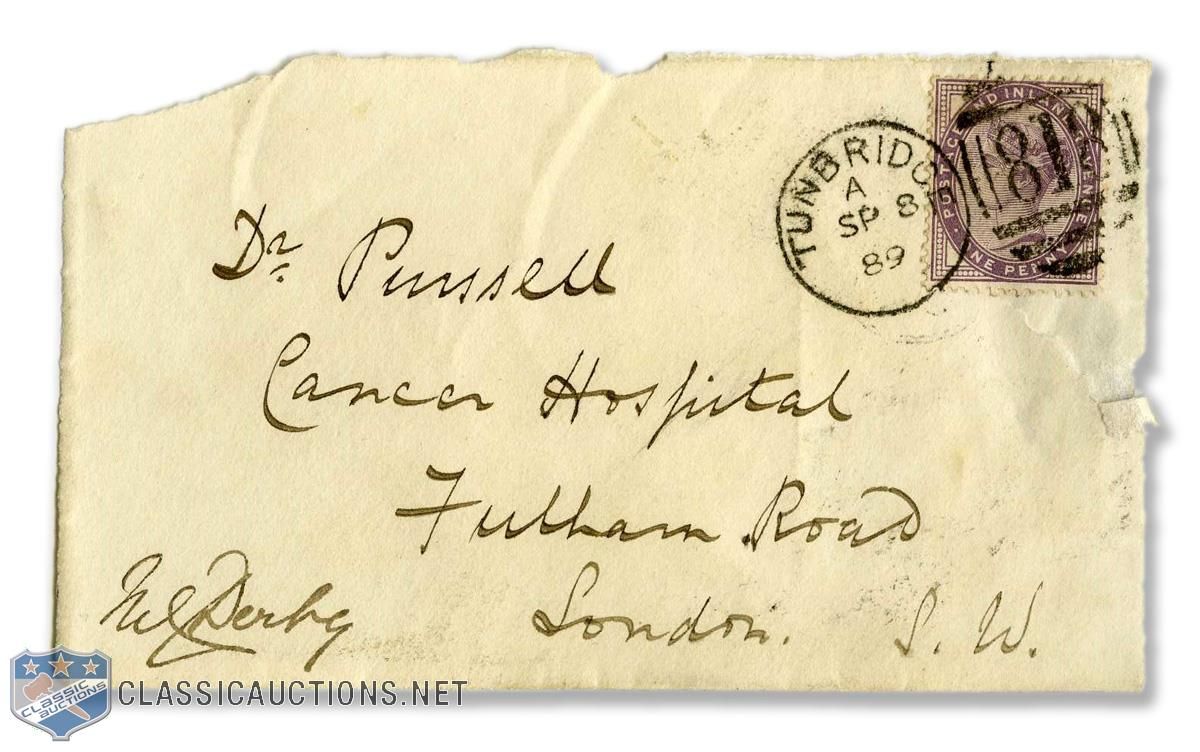 POSTAGE AND INLAND REVENUE
ONE PENNY
TUNBRIDGE
A
SP 8
89
Dr. Purssell
Cancer Hospital
Fulham Road
London. S. W.
Derby
CLASSIC AUCTIONS
CLASSICAUCTIONS.NET